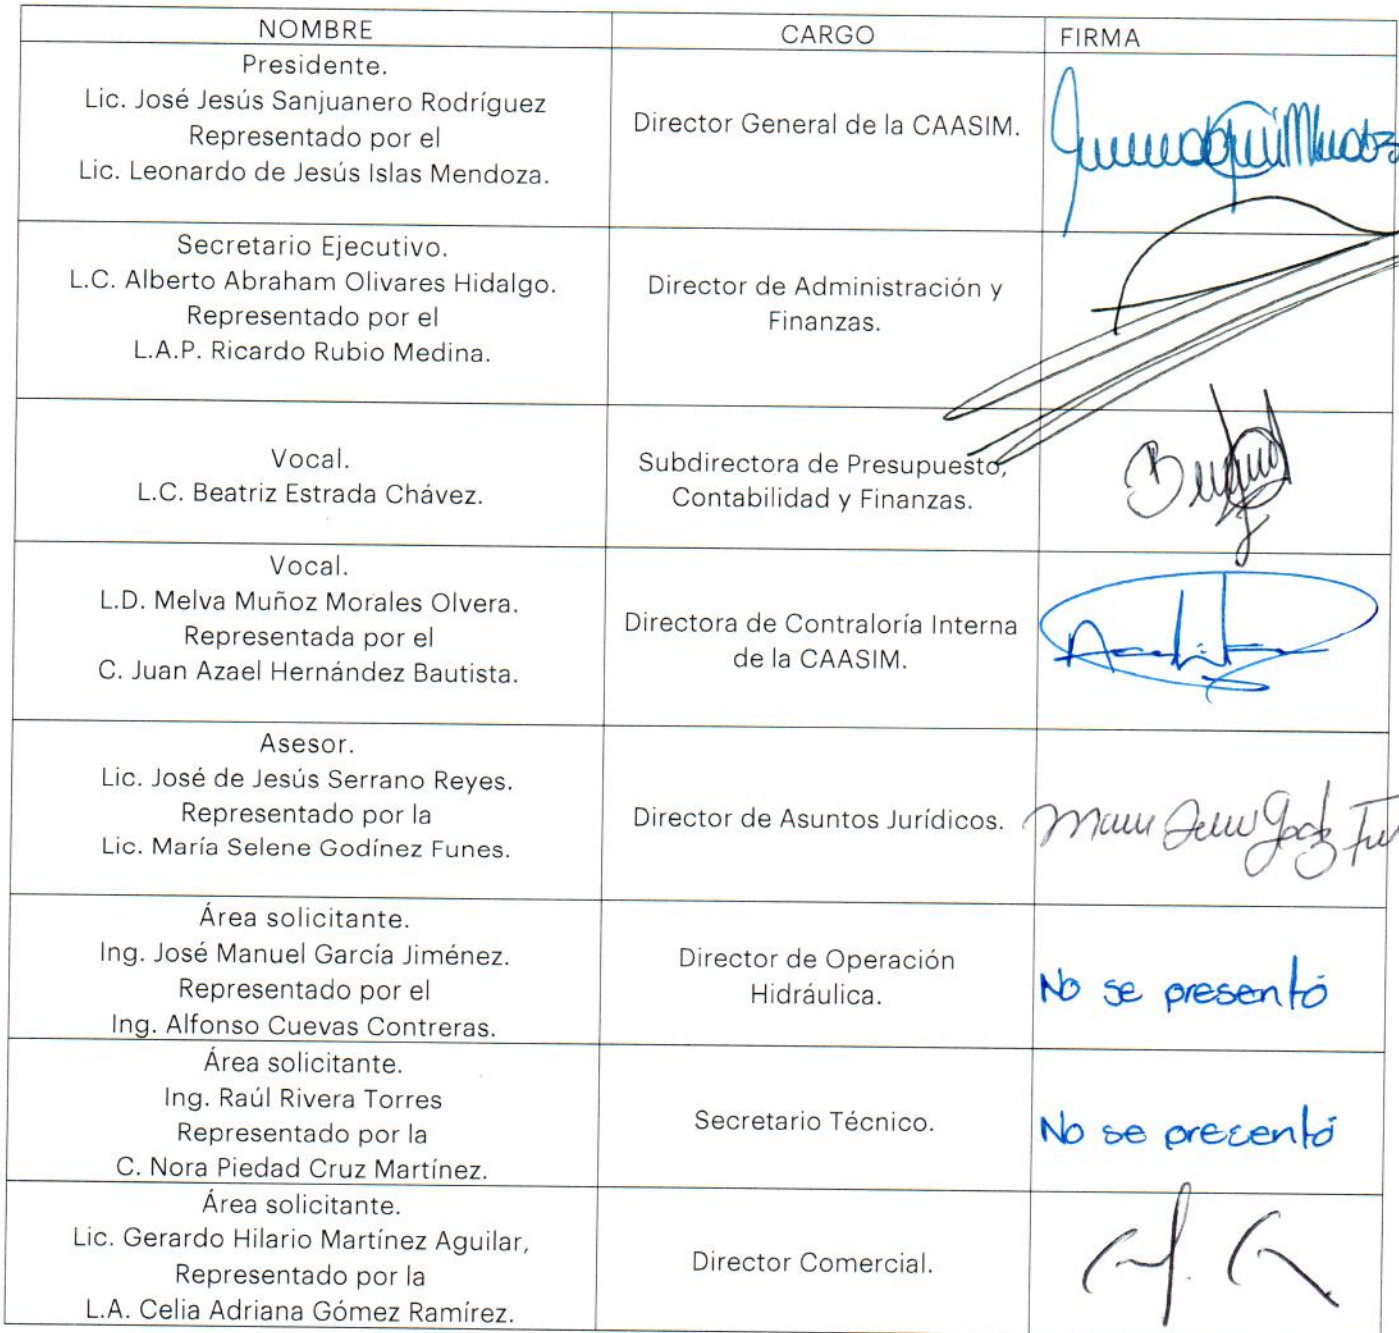 NOMBRE
CARGO
FIRMA
Presidente.
Lic. José Jesús Sanjuanero Rodríguez
Representado por el
Lic. Leonardo de Jesús Islas Mendoza.
Director General de la CAASIM.
Secretario Ejecutivo.
L.C. Alberto Abraham Olivares Hidalgo.
Representado por el
L.A.P. Ricardo Rubio Medina.
Director de Administración y
Finanzas.
Vocal.
L.C. Beatriz Estrada Chávez.
Subdirectora de Presupuesto,
Contabilidad y Finanzas.
Vocal.
L.D. Melva Muñoz Morales Olvera.
Representada por el
C. Juan Azael Hernández Bautista.
Directora de Contraloría Interna
de la CAASIM.
Asesor.
Lic. José de Jesús Serrano Reyes.
Representado por la
Lic. María Selene Godínez Funes.
Director de Asuntos Jurídicos.
Área solicitante.
Ing. José Manuel García Jiménez.
Representado por el
Ing. Alfonso Cuevas Contreras.
Director de Operación
Hidráulica.
No se presentó
Área solicitante.
Ing. Raúl Rivera Torres
Representado por la
C. Nora Piedad Cruz Martínez.
Secretario Técnico.
No se presentó
Área solicitante.
Lic. Gerardo Hilario Martínez Aguilar,
Representado por la
L.A. Celia Adriana Gómez Ramírez.
Director Comercial.